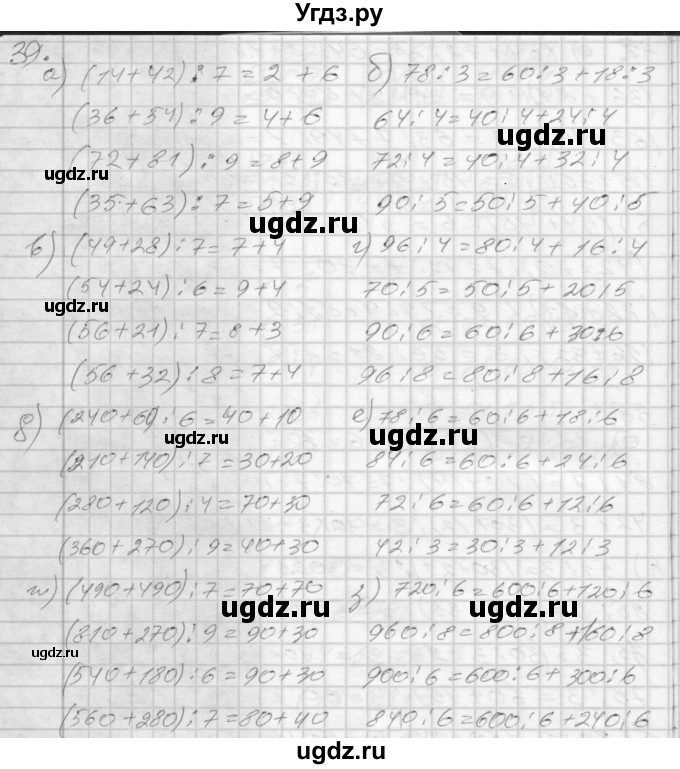 Угдз.ру
39.
а) (14+42):7=2+6 б) 78:3=60:3+18:3
(36+54):9=4+6 64:4=40:4+24:4
(72+81):9=8+9 72:4=40:4+32:4
(35+63):7=5+9 90:5=50:5+40:5
в) (49+28):7=7+4 г) 96:4=80:4+16:4
(54+24):6=9+4 70:5=50:5+20:5
(56+21):7=8+3 90:6=60:6+30:6
(56+32):8=7+4 96:8=80:8+16:8
д) (240+60):6=40+10 е) 78:6=60:6+18:6
(210+140):7=30+20 84:6=60:6+24:6
(280+120):4=70+30 72:6=60:6+12:6
(360+270):9=40+30 42:3=30:3+12:3
ж) (490+490):7=70+70 з) 720:6=600:6+120:6
(810+270):9=90+30 960:8=800:8+160:8
(540+180):6=90+30 900:6=600:6+300:6
(560+280):7=80+40 840:6=600:6+240:6
ugdz.ru
ugdz.ru
ugdz.ru
ugdz.ru
ugdz.ru
ugdz.ru
ugdz.ru
ugdz.ru
ugdz.ru
ugdz.ru
ugdz.ru